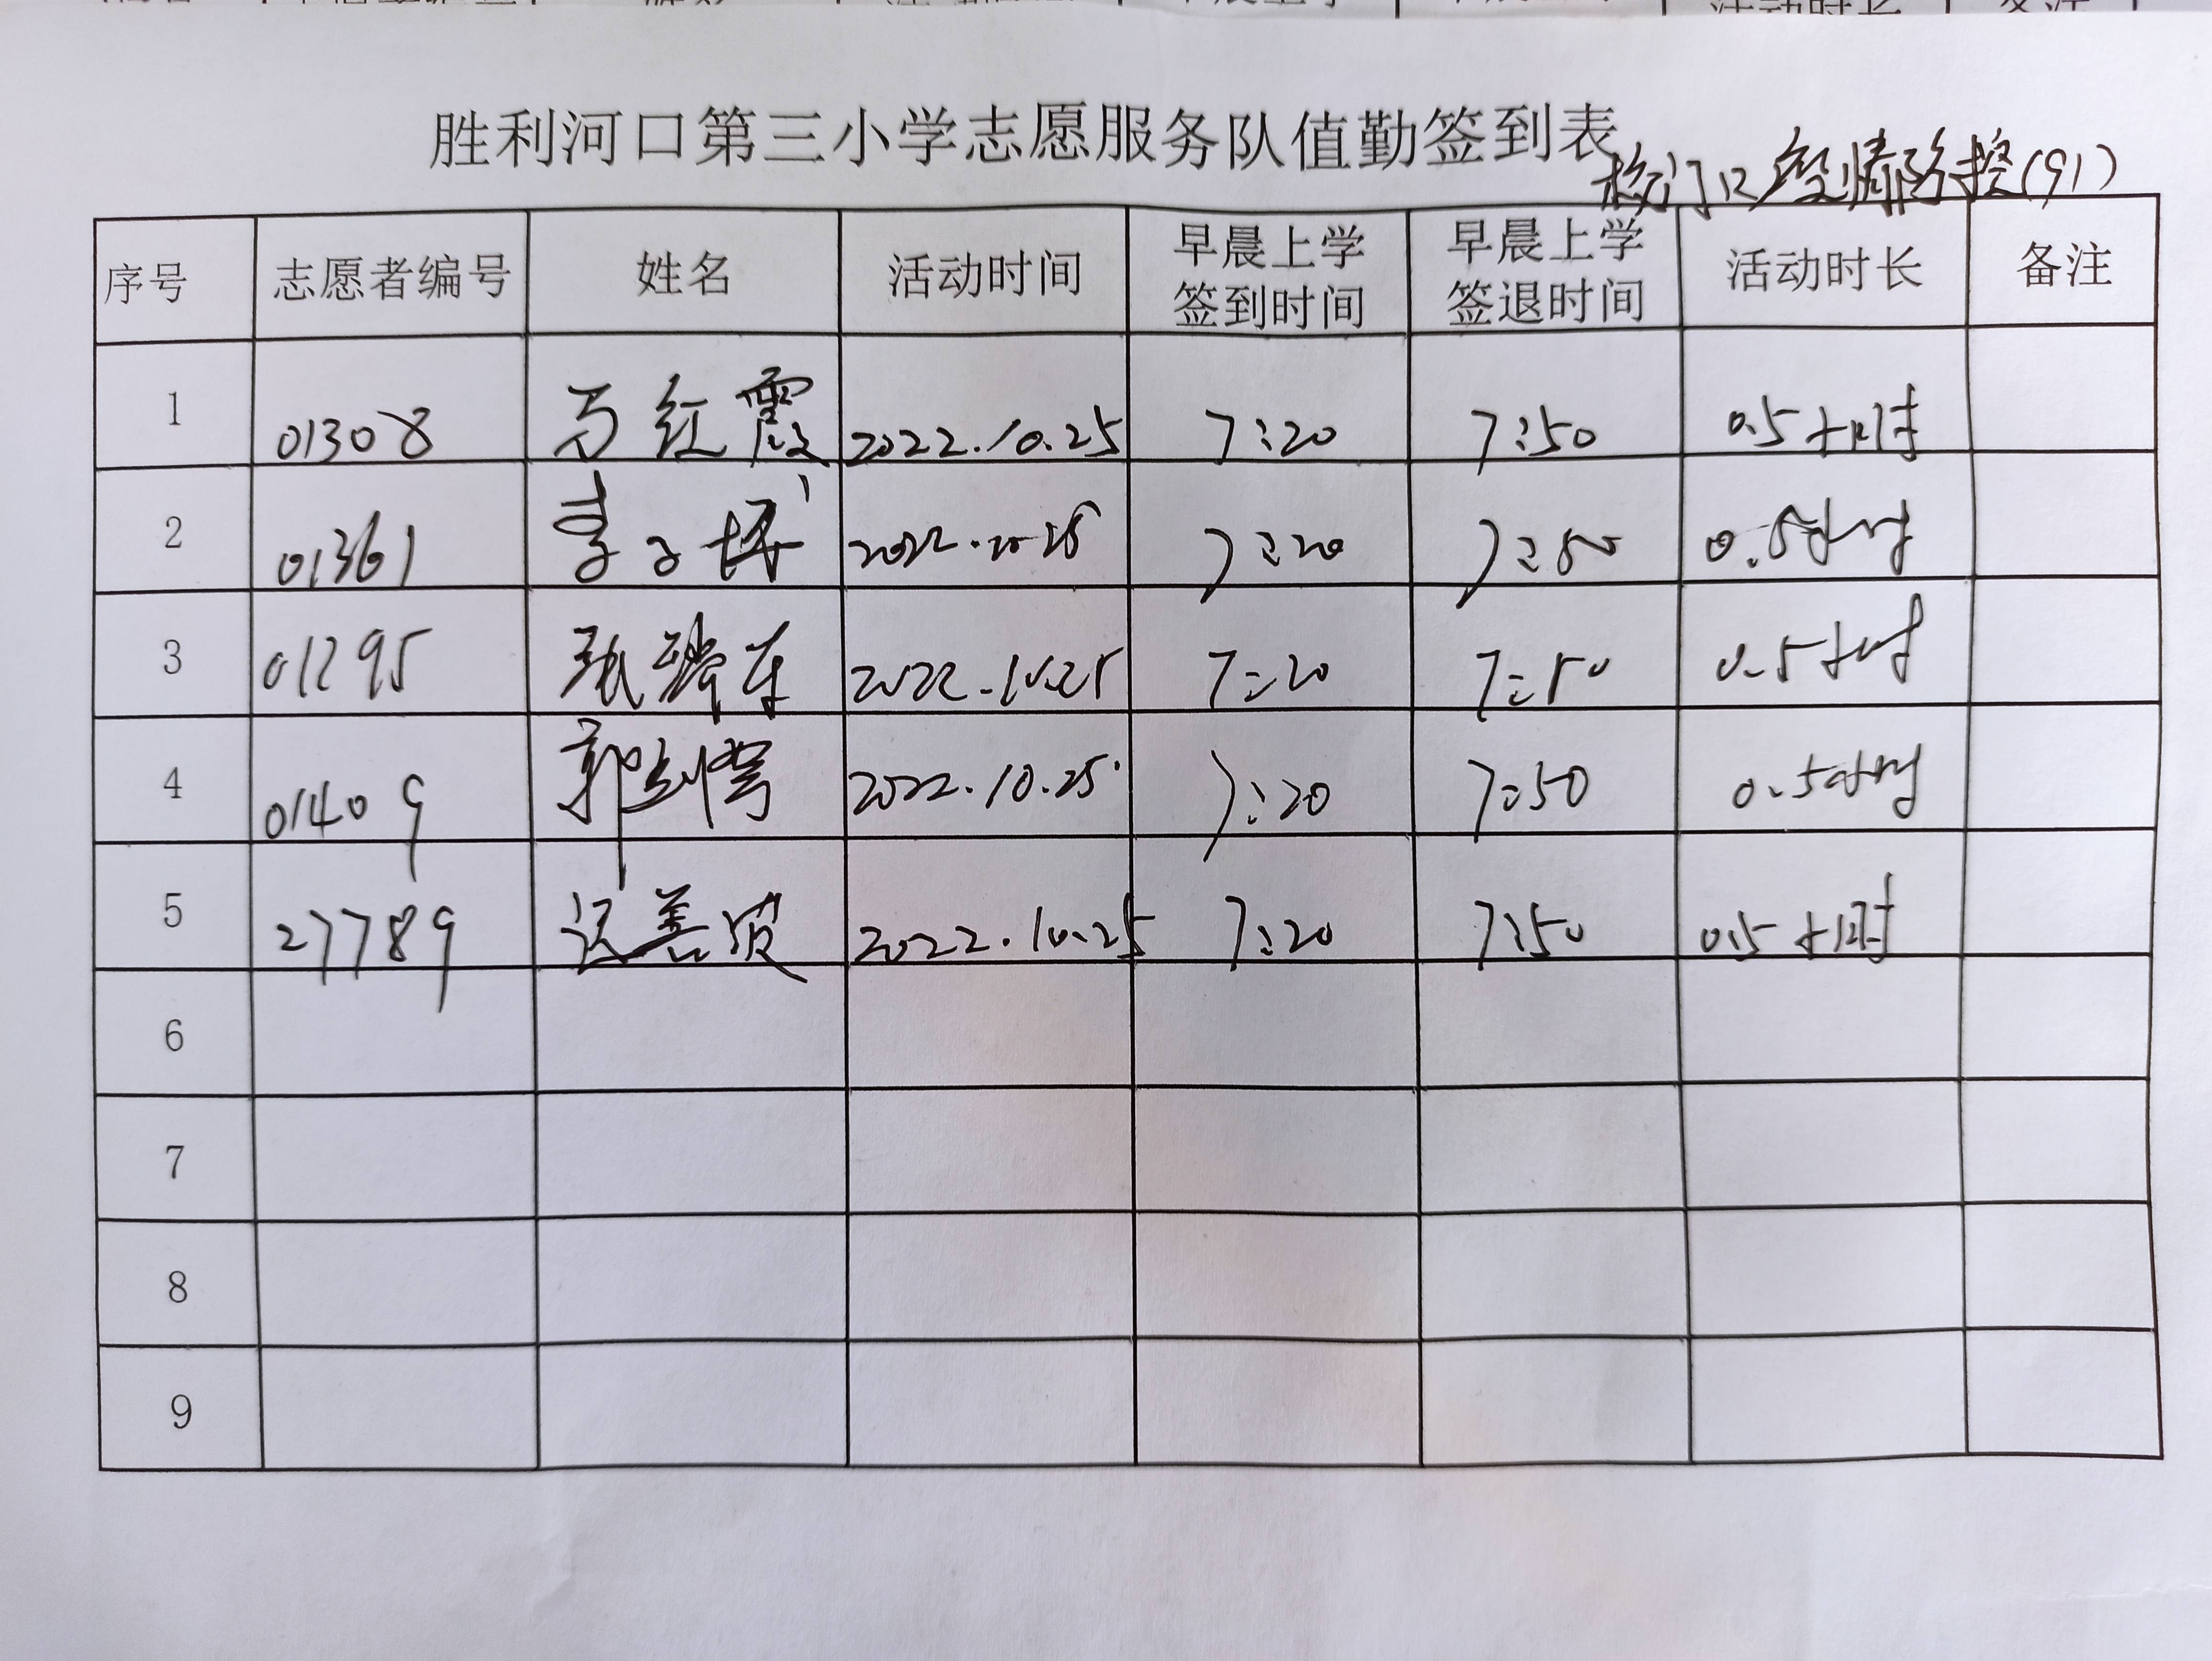 胜利河口第三小学志愿服务队值勤签到表
校门口疫情防控(91)
序号 志愿者编号 姓名 活动时间 早晨上学签到时间 早晨上学签退时间 活动时长 备注
1 01308 马红霞 2022.10.25 7:20 7:50 0.5小时
2 01361 李子博 2022.10.25 7:20 7:50 0.5小时
3 01295 张瑞东 2022.10.25 7:20 7:50 0.5小时
4 01409 郭剑 2022.10.25 7:20 7:50 0.5小时
5 27789 善波 2022.10.25 7:20 7:50 0.5小时
6
7
8
9